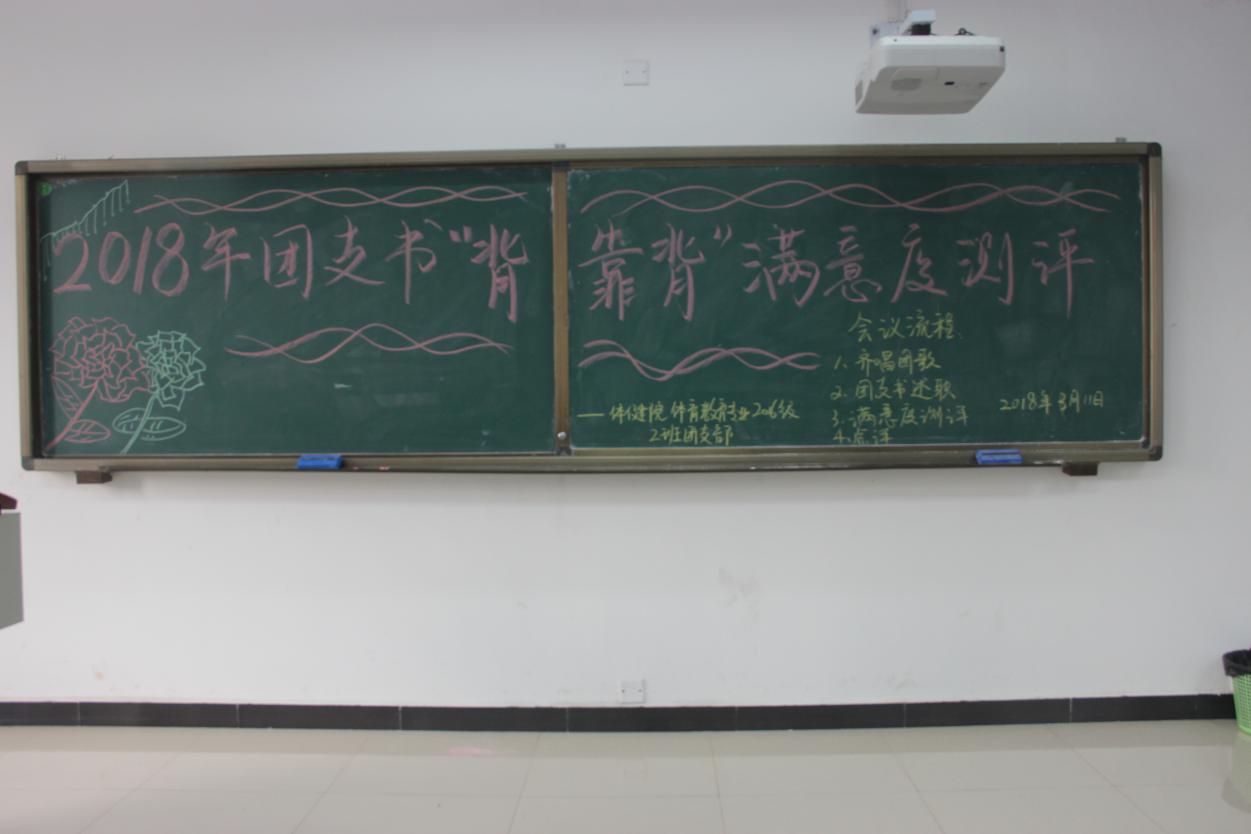 2018年团支书“背靠背”满意度测评
会议流程
1、齐唱团歌
2、团支书述职
3、满意度测评
4、点评
2018年3月11日
——体健院 体育教育专业2016级
2班团支部